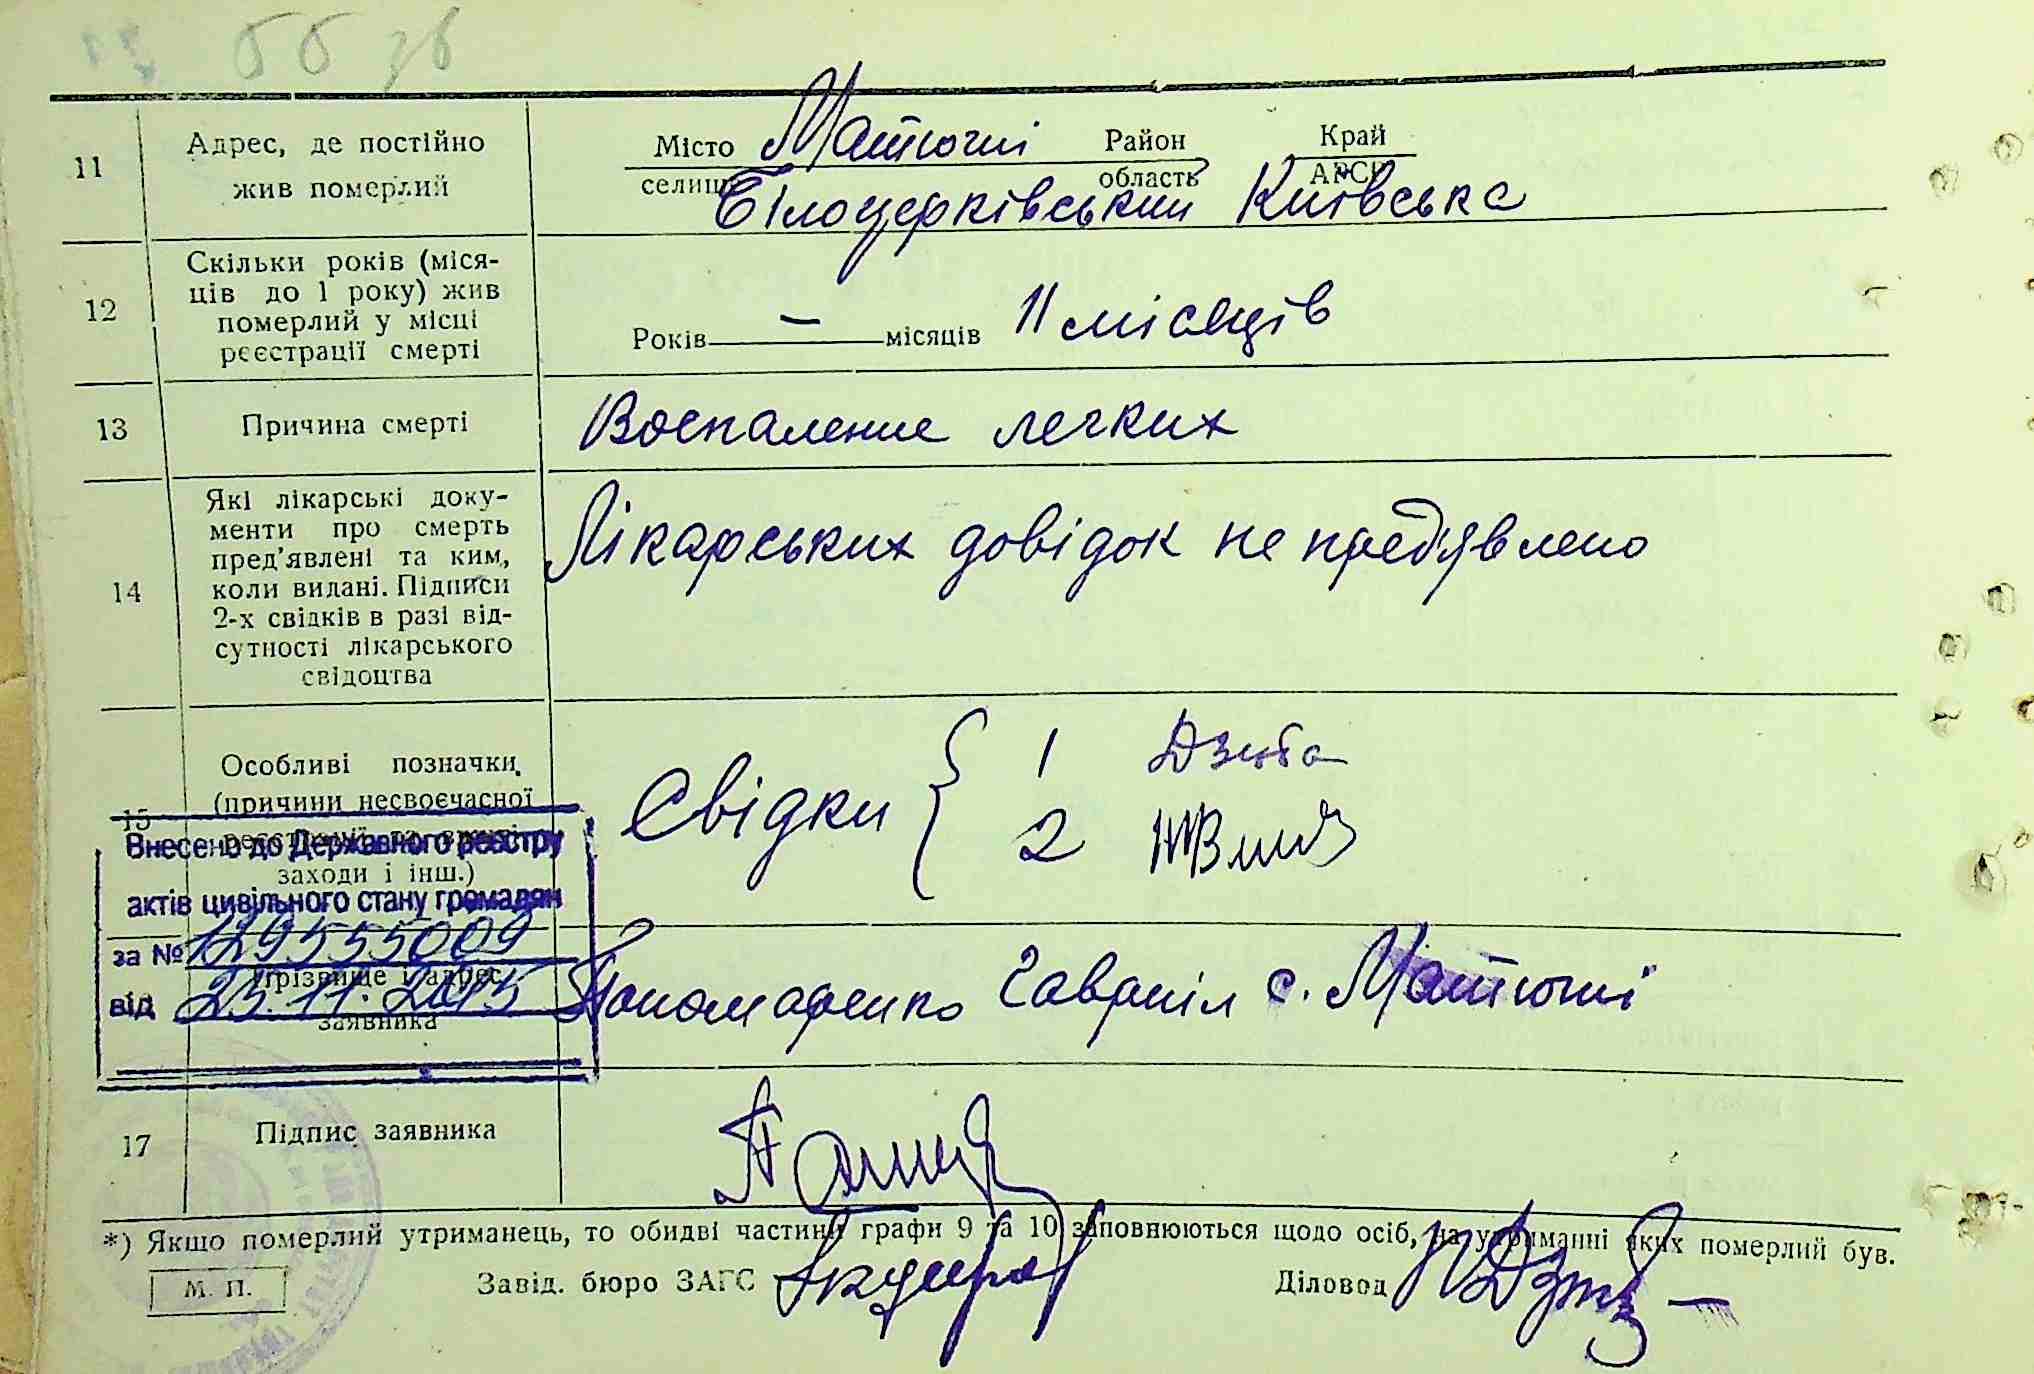 66 зв
11 Адрес, де постійно жив померлий
Місто Матюші Район Край
селище область АРСР
Білоцерківський Київська
12 Скільки років (міся-
ців до 1 року) жив
померлий у місці
реєстрації смерті
Років — місяців 11 місяців
13 Причина смерті
Воспаление легких
14 Які лікарські доку-
менти про смерть
пред'явлені та ким,
коли видані. Підписи
2-х свідків в разі від-
сутності лікарського
свідоцтва
Лікарських довідок не предʼявлено
15 Особливі позначки
(причини несвоєчасної
заходи і інш.)
Свідки 1 Дзюба
2
Внесено до Державного реєстру
актів цивільного стану громадян
за № 129555009
від 25.11.2015
Прізвище і адрес
заявника
Пономаренко Гавриіл с. Матюші
17 Підпис заявника
*) Якщо померлий утриманець, то обидві частини графи 9 та 10 заповнюються щодо осіб, на утриманні яких померлий був.
М. П. Завід. бюро ЗАГС Діловод